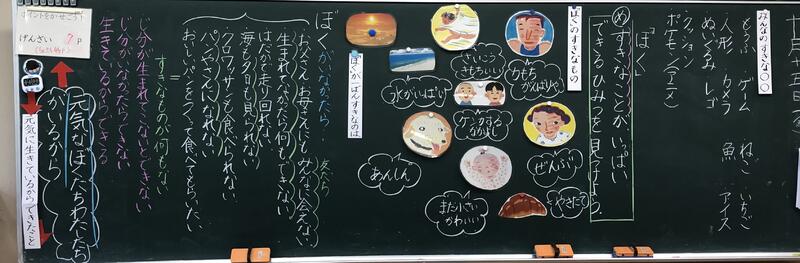 十月十五日(
みんなのすきな〇〇
もうふ ゲーム ねこ いちご
人形 カメラ 魚 アイス
ぬいぐるみ レゴ
クッション
ポケモン(アニメ)
「ぼく」
め すきなことが、いっぱい
できるひみつを見つけよう。
ぼくのすきなもの
力もち
がんばりや
ぜんぶ
やきたて
さいこう
きもちいい
ケンカする
なかよし
まだ小さい
かわいい
水がいっぱい
あんしん
ぼくが一ばんすきなのは
ぼくがいなかったら
友だち
お父さんお母さんもみんなに会えない。
生まれなかったら何もできない
はだかで走り回れない
海も夕日も見られない
クロワッサン食べられない
パンやさんになれない
おいしいパンをつくって食べてもらいたい
すきなものが何もない
じ分が生まれてこないとできない
じ分がいなかったらできない
生きているからできる
元気なぼくたちわたしたち
がいるから
元気に生きているからできたこと
ポイントをかせごう!
げんざい ?P